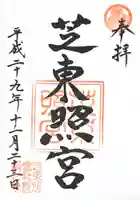 奉拝
芝東照宮
平成二十九年十一月二十三日